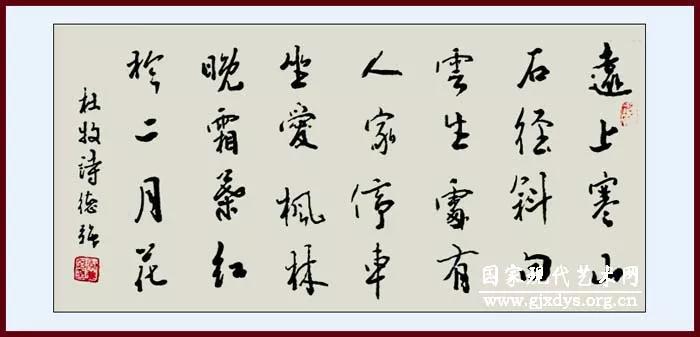 遠上寒山
石徑斜白
雲生處有
人家停車
坐愛楓林
晚霜葉紅
於二月花
杜牧詩德强
国家现代艺术网
www.gjxdys.org.cn